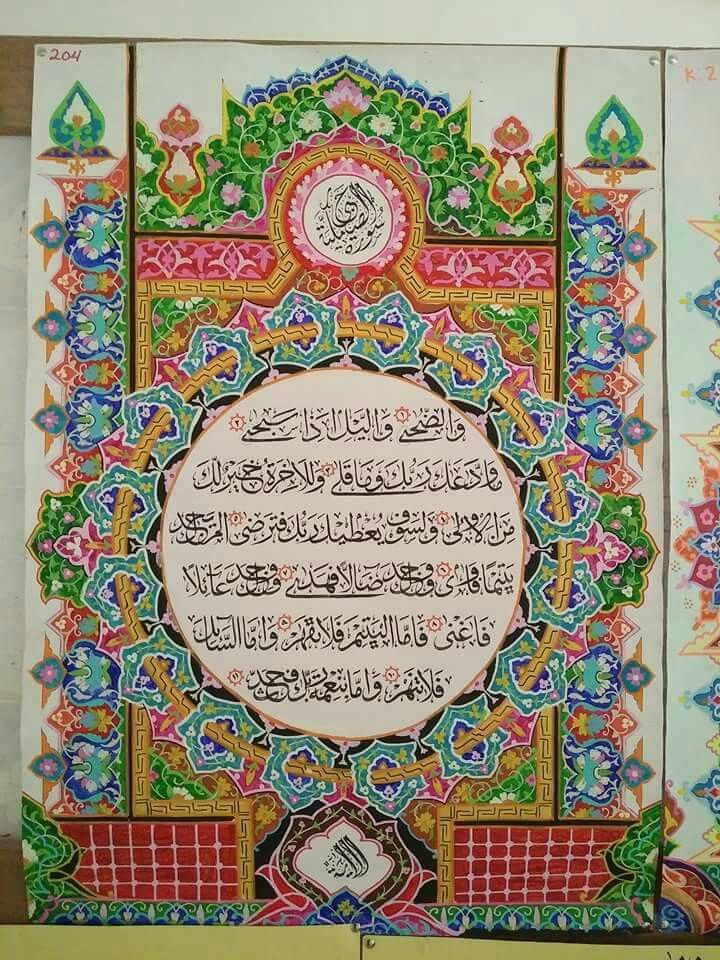 204
K.2
سورة الضحى مكية
والضحى ١ واليل اذا سجى ٢
ما ودعك ربك وما قلى ٣ وللاخرة خير لك
من الاولى ٤ ولسوف يعطيك ربك فترضى ٥ الم يجدك
يتيما فاوى ٦ ووجدك ضالا فهدى ٧ ووجدك عائلا
فاغنى ٨ فاما اليتيم فلا تقهر ٩ واما السائل
فلا تنهر ١٠ واما بنعمة ربك فحدث ١١